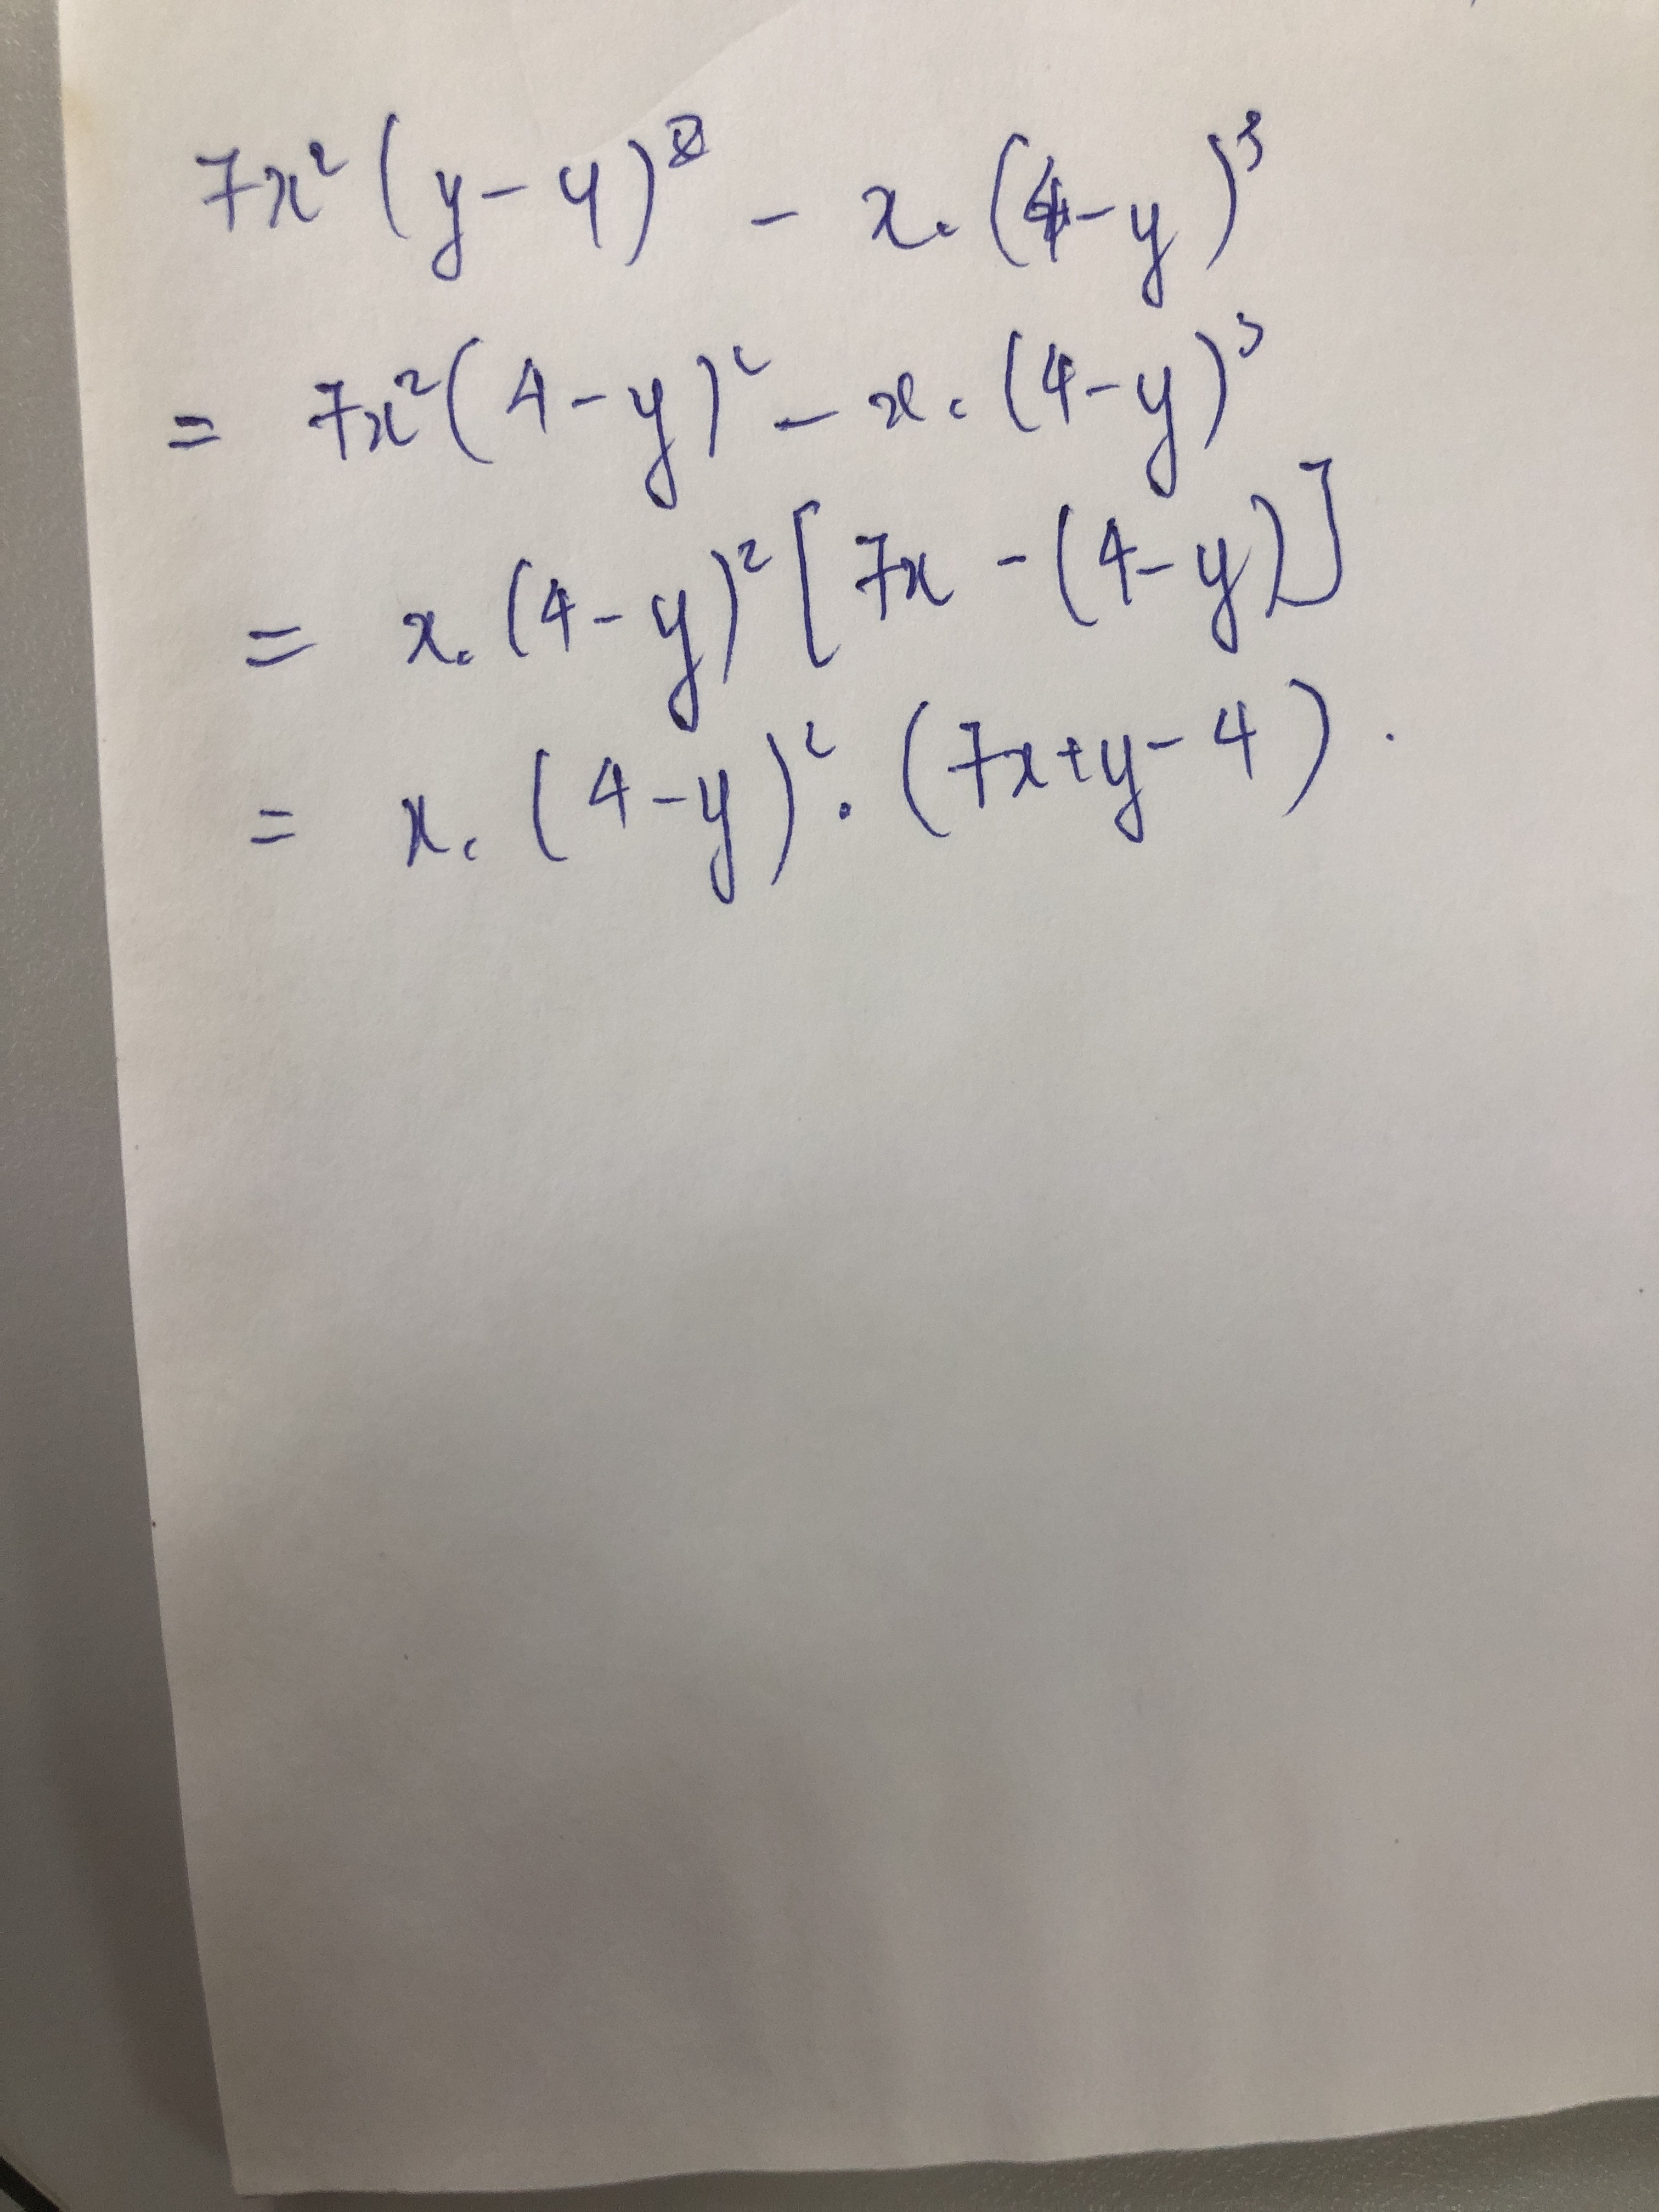 7x²(y-4)² - x.(4-y)³
= 7x²(4-y)² - x.(4-y)³
= x.(4-y)²[7x-(4-y)]
= x.(4-y)².(7x+y-4).